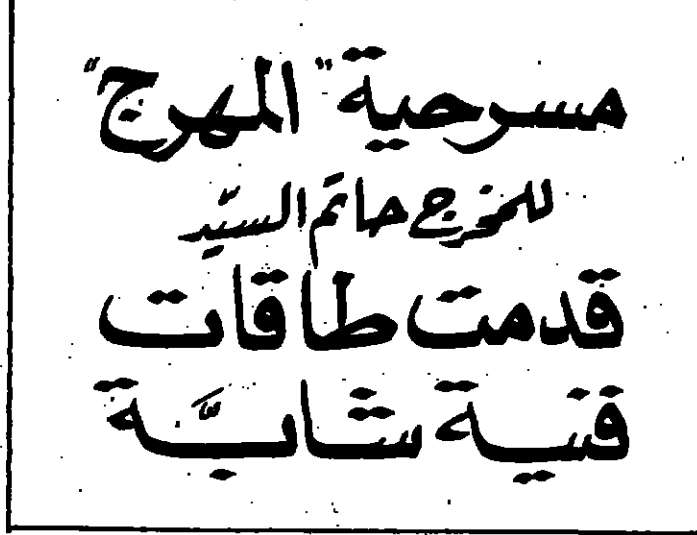 مسرحية "المهرج"
للمخرج حاتم السيّد
قدمت طاقات
فنية شابَّة